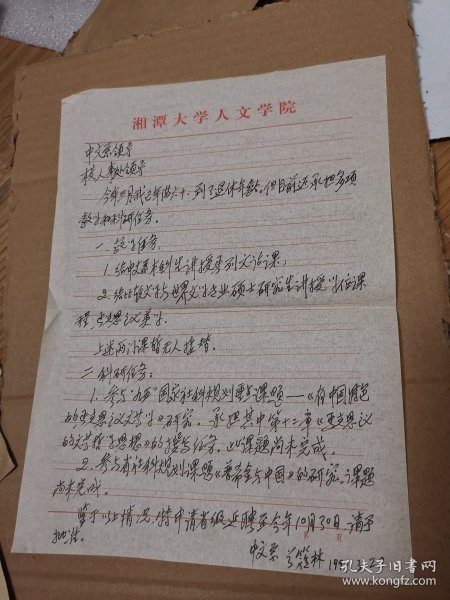 湘潭大学人文学院
中文系领导
校人事处领导
今年三月我已年满六十,到了退休年龄。但目前还承担多项
教学和科研任务。
一、教学任务
1.给中文系本科生讲授系列文论课;
2.给比较文学与世界文学专业硕士研究生讲授学位课
程
上述两门课暂无人接替。
二、科研任务:
1.参与"九五"国家社科规划重点课题——《有中国特色
的 文学》研究。承担其中第十二章
的文学 思想》的撰写任务,此课题尚未完成。
2.参与省社科规划课题《 与中国》的研究。课题
尚未完成。
鉴于以上情况,特申请者 延聘至今年10月30日,请予
批准。
中文系
孔夫子旧书网
www.kongfz.com